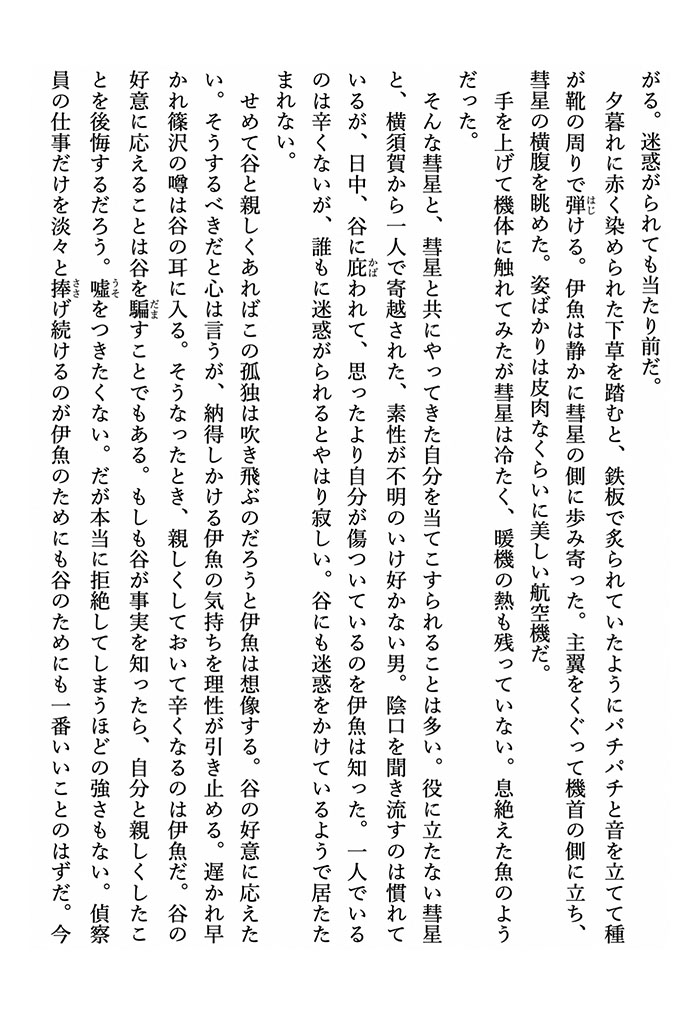 がる。迷惑がられても当たり前だ。
　夕暮れに赤く染められた下草を踏むと、鉄板で炙られていたようにパチパチと音を立てて種
が靴の周りで弾ける。伊魚は静かに彗星の側に歩み寄った。主翼をくぐって機首の側に立ち、
彗星の横腹を眺めた。姿ばかりは皮肉なくらいに美しい航空機だ。
　手を上げて機体に触れてみたが彗星は冷たく、暖機の熱も残っていない。息絶えた魚のよう
だった。
　そんな彗星と、彗星と共にやってきた自分を当てこすられることは多い。役に立たない彗星
と、横須賀から一人で寄越された、素性が不明のいけ好かない男。陰口を聞き流すのは慣れて
いるが、日中、谷に庇われて、思ったより自分が傷ついているのを伊魚は知った。一人でいる
のは辛くないが、誰もに迷惑がられるとやはり寂しい。谷にも迷惑をかけているようで居たた
まれない。
　せめて谷と親しくあればこの孤独は吹き飛ぶのだろうと伊魚は想像する。谷の好意に応えた
い。そうするべきだと心は言うが、納得しかける伊魚の気持ちを理性が引き止める。遅かれ早
かれ篠沢の噂は谷の耳に入る。そうなったとき、親しくしておいて辛くなるのは伊魚だ。谷の
好意に応えることは谷を騙すことでもある。もしも谷が事実を知ったら、自分と親しくしたこ
とを後悔するだろう。嘘をつきたくない。だが本当に拒絶してしまうほどの強さもない。偵察
員の仕事だけを淡々と捧げ続けるのが伊魚のためにも谷のためにも一番いいことのはずだ。今
はじ
かば
だま
うそ
ささ